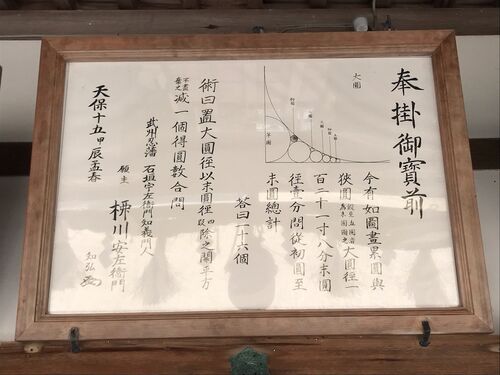 奉掛御寶前
今有如圖畫累圓與
大圓径一
百二十一寸八分末圓
径壹分問從初圓至
末圓總計
大圓
初圓
答曰二十六個
術曰置大圓径以末圓径四段除之開平方
不盡棄之
減一個得圓數合問
武州忍藩
石垣宇左衛門知義門人
願主
栁川安左衛門
知弘
天保十五甲辰孟春